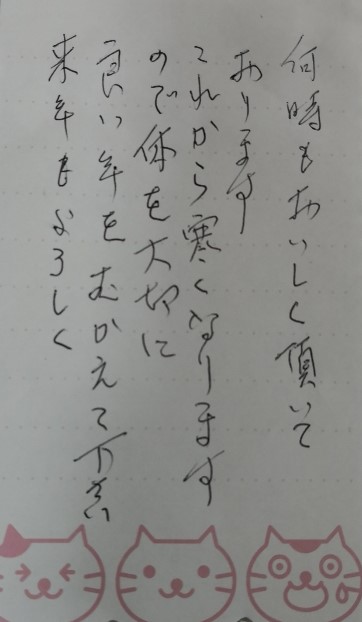 何時もおいしく頂いて
おります
これから寒くなります
ので体を大切に
良い年をむかえて下さい
来年もよろしく